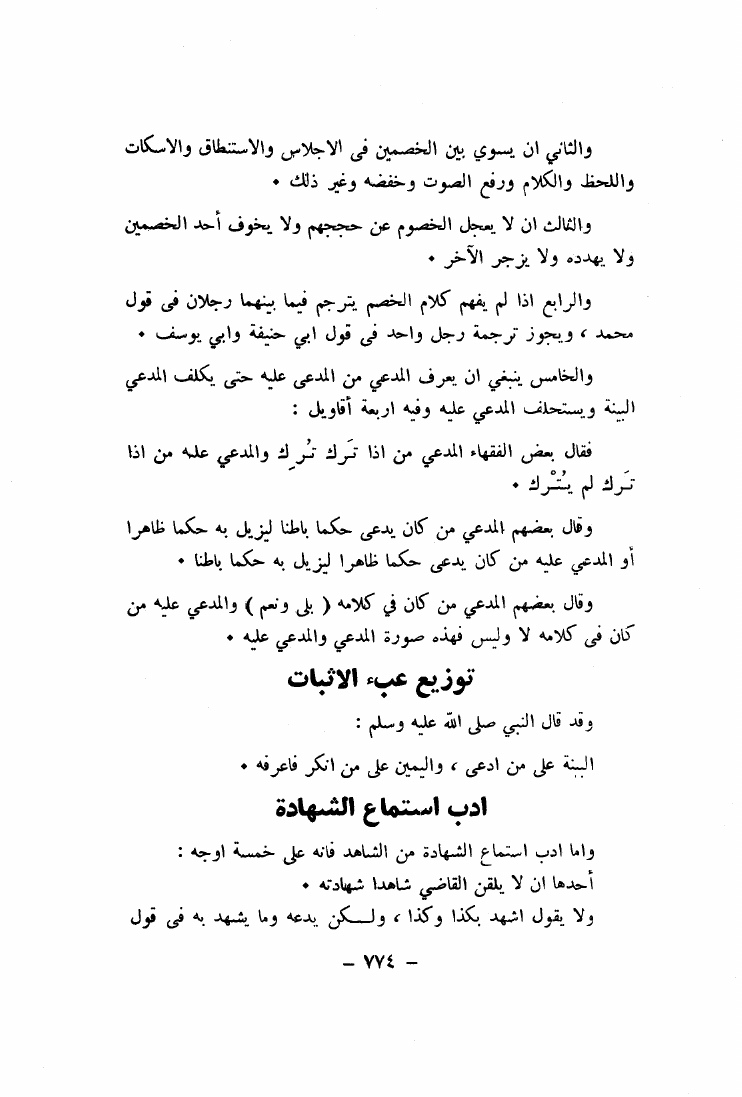 والثاني ان يسوي بين الخصمين فى الاجلاس والاستنطاق والاسكات
واللحظ والكلام ورفع الصوت وخفضه وغير ذلك •
والثالث ان لا يعجل الخصوم عن حججهم ولا يخوف أحد الخصمين
ولا يهدده ولا يزجر الآخر •
والرابع اذا لم يفهم كلام الخصم يترجم فيما بينهما رجلان فى قول
محمد ، ويجوز ترجمة رجل واحد فى قول ابي حنيفة وابي يوسف •
والخامس ينبغي ان يعرف المدعي من المدعى عليه حتى يكلف المدعي
البينة ويستحلف المدعي عليه وفيه اربعة أقاويل :
فقال بعض الفقهاء المدعي من اذا تَرك تُرِك والمدعي عليه من اذا
تَرك لم يُتْرك •
وقال بعضهم المدعي من كان يدعى حكما باطنا ليزيل به حكما ظاهرا
أو المدعي عليه من كان يدعى حكما ظاهرا ليزيل به حكما باطنا •
وقال بعضهم المدعي من كان في كلامه ( بلى ونعم ) والمدعي عليه من
كان فى كلامه لا وليس فهذه صورة المدعي والمدعي عليه •
توزيع عبء الاثبات
وقد قال النبي صلى الله عليه وسلم :
البينة على من ادعى ، واليمين على من انكر فاعرفه •
ادب استماع الشهادة
واما ادب استماع الشهادة من الشاهد فانه على خمسة اوجه :
أحدها ان لا يلقن القاضي شاهدا شهادته •
ولا يقول اشهد بكذا وكذا ، ولـكن يدعه وما يشهد به فى قول
– ٧٧٤ –